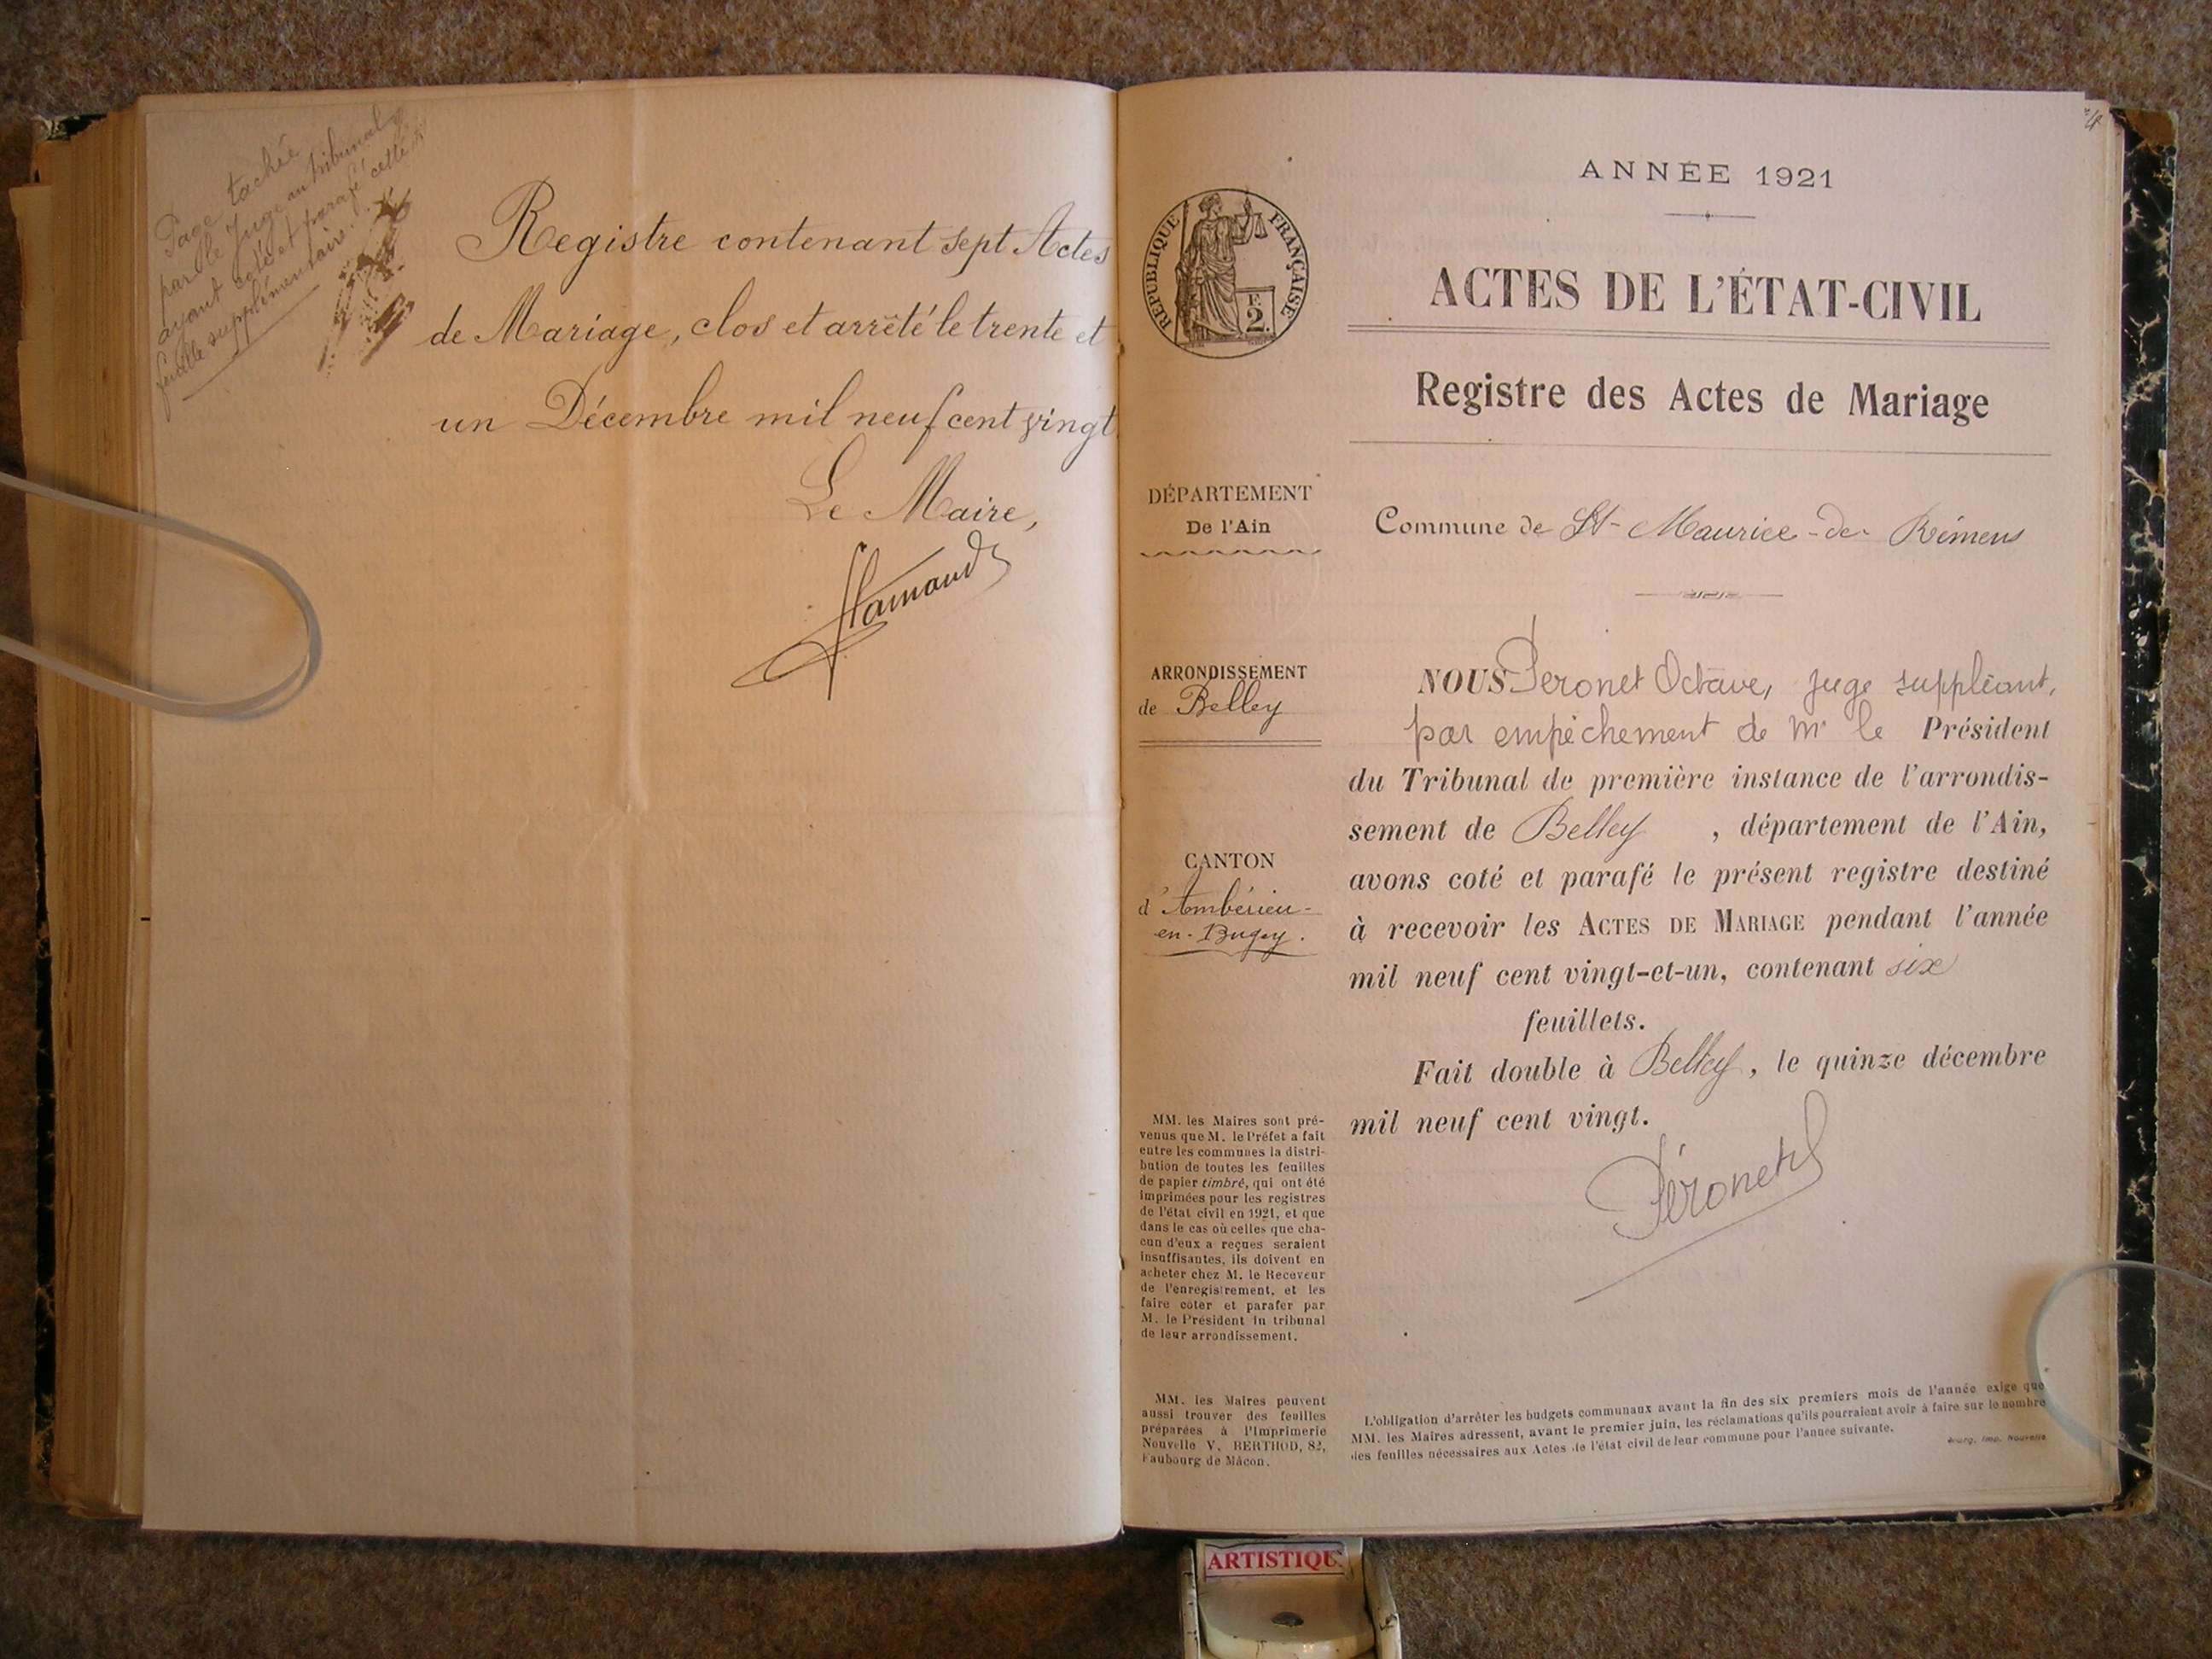 Page tachée
par le Juge au tribunal
ayant coté et parafé cette
feuille supplémentaire.
Registre contenant sept Actes
de Mariage, clos et arrêté le trente et
un Décembre mil neuf cent vingt
Le Maire,
ANNÉE 1921
RÉPUBLIQUE FRANÇAISE
F.
2.
ACTES DE L'ÉTAT-CIVIL
Registre des Actes de Mariage
DÉPARTEMENT
De l'Ain
Commune de St-Maurice-de-Rémens
ARRONDISSEMENT
de Belley
CANTON
d'Ambérieu-
en-Bugey.
NOUS Peronet Octave, juge suppléant,
par empêchement de Mr le Président
du Tribunal de première instance de l'arrondis-
sement de Belley, département de l'Ain,
avons coté et parafé le présent registre destiné
à recevoir les ACTES DE MARIAGE pendant l'année
mil neuf cent vingt-et-un, contenant six
feuillets.
Fait double à Belley, le quinze décembre
mil neuf cent vingt.
Péronet
MM. les Maires sont pré-
venus que M. le Préfet a fait
entre les communes la distri-
bution de toutes les feuilles
de papier timbré, qui ont été
imprimées pour les registres
de l'état civil en 1921, et que
dans le cas où celles que cha-
cun d'eux a reçues seraient
insuffisantes, ils doivent en
acheter chez M. le Receveur
de l'enregistrement, et les
faire coter et parafer par
M. le Président du tribunal
de leur arrondissement.
MM. les Maires peuvent
aussi trouver des feuilles
préparées à l'Imprimerie
Nouvelle V. BERTHOD, 82,
Faubourg de Mâcon.
L'obligation d'arrêter les budgets communaux avant la fin des six premiers mois de l'année exige que
MM. les Maires adressent, avant le premier juin, les réclamations qu'ils pourraient avoir à faire sur le nombre
des feuilles nécessaires aux Actes de l'état civil de leur commune pour l'année suivante.
Bourg, Imp. Nouvelle
ARTISTIQUE